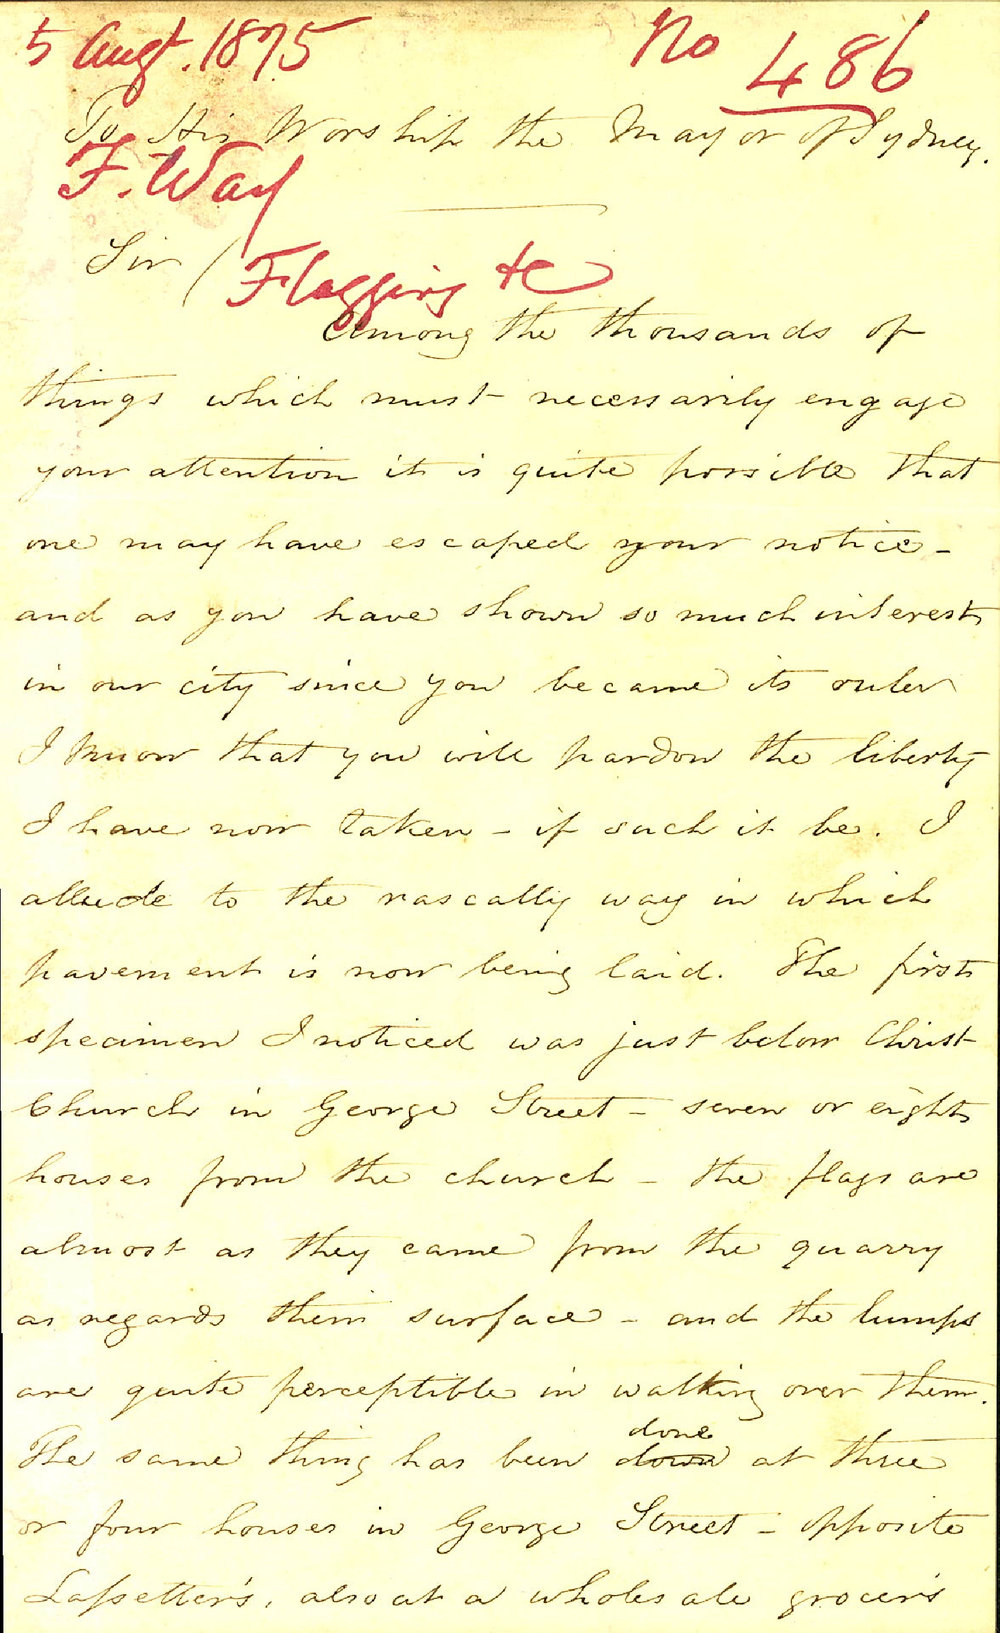 5 Augt. 1875
No 486
To His Worship the Mayor of Sydney.
F. Way
Sir /
Flagging &c
Among the thousands of
things which must necessarily engage
your attention it is quite possible that
one may have escaped your notice -
and as you have shown so much interest
in our city since you became its ruler
I know that you will pardon the liberty
I have now taken - if such it be. I
allude to the rascally way in which
pavement is now being laid. The first
specimen I noticed was just below Christ
Church in George Street - seven or eight
houses from the church - the flags are
almost as they came from the quarry
as regards their surface - and the lumps
are quite perceptible in walking over them.
done
The same thing has been down at three
or four houses in George Street - opposite
Lassetter's, also at a wholesale grocer's